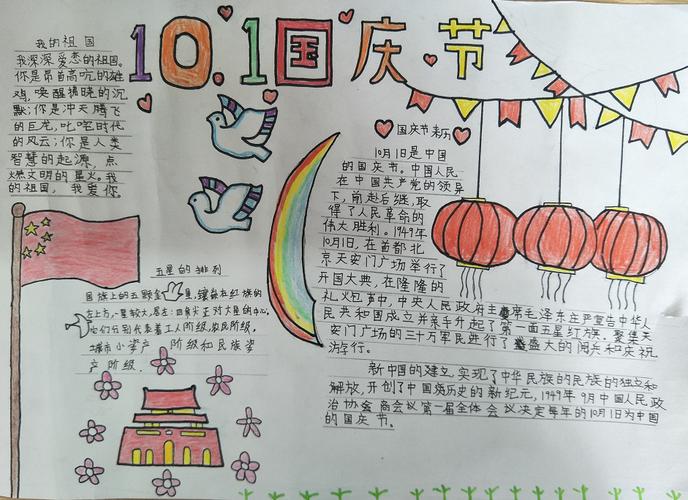 10.1国庆节
我的祖国
我深深爱恋的祖国。
你是昂首高吭的雄
鸡,唤醒拂晓的沉
默;你是冲天腾飞
的巨龙,叱咤时代
的风云;你是人类
智慧的起源,点
燃文明的星火。我
的祖国,我爱你。
五星的排列
国旗上的五颗金星,镶嵌在红旗的
左上方,一星较大,居左;四
正对大星的中心,
它们分别代表着工人阶级,农民阶级,
城市小资产阶级和民族资
产阶级.
国庆节来历
10月1日是中国
的国庆节。中国人民
在中国共产党的领导
下,前赴后继,取
得了人民革命的
伟大胜利。1949年
10月1日,在首都北
京天安门广场举行了
开国大典,在隆隆的
礼火包声中,中央人民政府主席毛泽东庄严宣告中华人
民共和国成立并亲手升起了第一面五星红旗。聚集天
安门广场的三十万军民进行了盛大的阅兵和庆祝
游行。
新中国的建立,实现了中华民族的民族的独立和
解放,开创了中国历史的新纪元,1949年9月中国人民政
治协会商会议第一届全体会议决定每年的10月1日为中国
的国庆节.